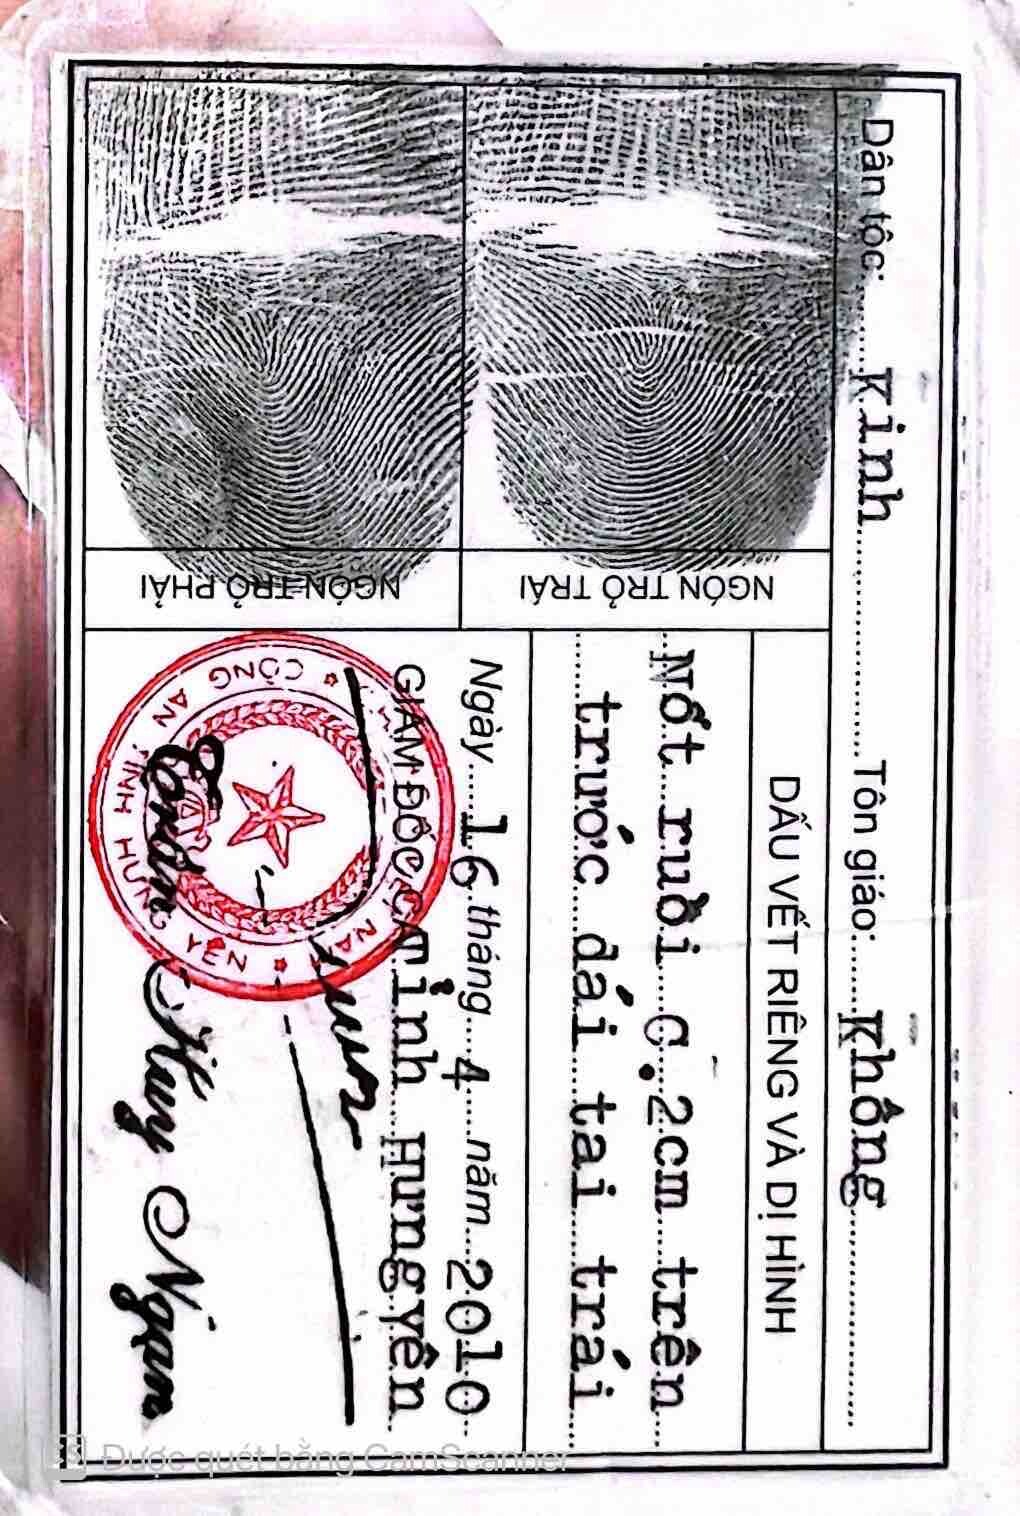 Dân tộc: Kinh Tôn giáo: Không
DẤU VẾT RIÊNG VÀ DỊ HÌNH
Nốt ruồi C.2cm trên
trước dái tai trái
Ngày 16 tháng 4 năm 2010
GIÁM ĐỐC CA Tỉnh Hưngyên
NGÓN TRỎ TRÁI
NGÓN TRỎ PHẢI
CÔNG AN TỈNH HƯNG YÊN
Huy Ngạn
CS Được quét bằng CamScanner